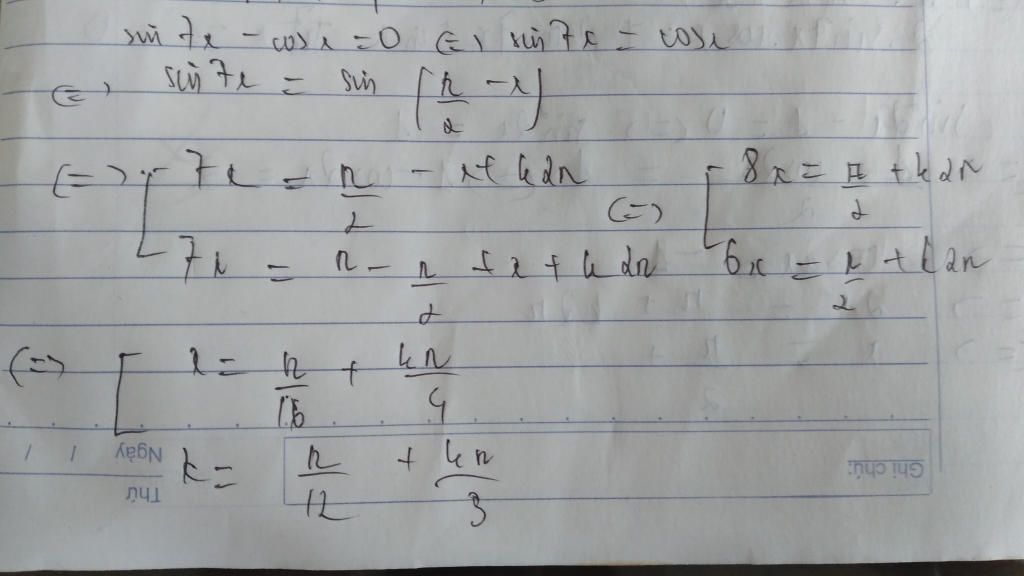 sin 7x - cos x = 0 (=) sin 7x = cos x
(=) sin 7x = sin [π/2 - x]
(=) [ 7x = π/2 - x + k2π (=) [ 8x = π/2 + k2π
7x = π - π/2 + x + k2π 6x = π/2 + k2π
(=) [ x = π/16 + kπ/4
x = π/12 + kπ/3
Ngày / /
Thứ
Ghi chú: